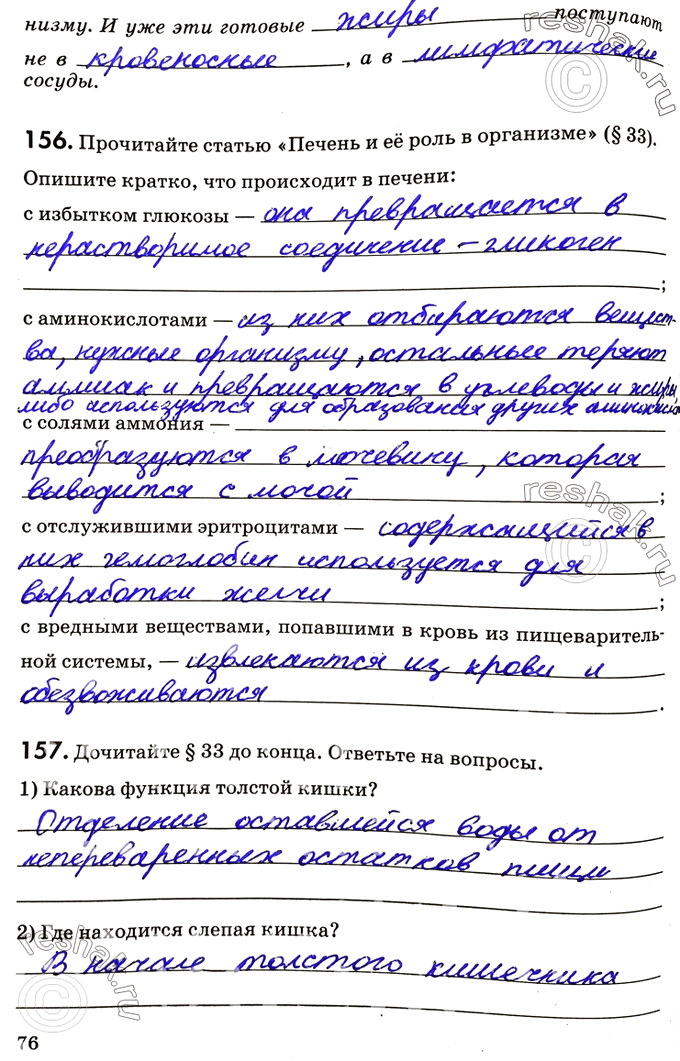 низму. И уже эти готовые жиры поступают
не в кровеносные, а в лимфатические
сосуды.
156. Прочитайте статью «Печень и её роль в организме» (§ 33).
Опишите кратко, что происходит в печени:
с избытком глюкозы — она превращается в
нерастворимое соединение – гликоген
;
с аминокислотами — из них отбираются вещест-
ва, нужные организму, остальные теряют
аммиак и превращаются в углеводы и жиры,
либо используются для образования других аминокислот
с солями аммония —
преобразуются в мочевину, которая
выводится с мочой ;
с отслужившими эритроцитами — содержащийся в
них гемоглобин используется для
выработки желчи ;
с вредными веществами, попавшими в кровь из пищеваритель-
ной системы, — извлекаются из крови и
обезвоживаются .
157. Дочитайте § 33 до конца. Ответьте на вопросы.
1) Какова функция толстой кишки?
Отделение оставшейся воды от
непереваренных остатков пищи
2) Где находится слепая кишка?
В начале толстого кишечника
76
reshak.ru
reshak.ru
reshak.ru
reshak.ru